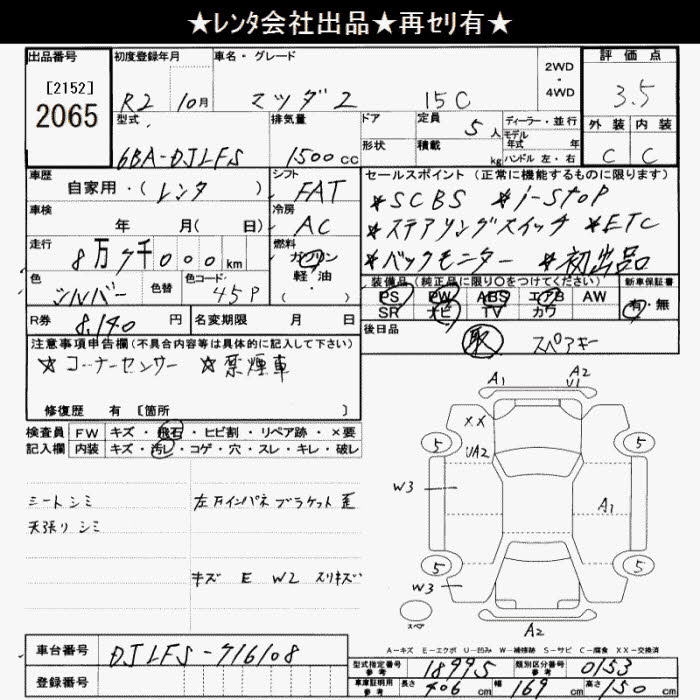 ★レンタ会社出品★再セリ有★
出品番号 初度登録年月 車名・グレード 2WD・4WD 評価点
[2152]
2065 R2 10月 マツダ2 15C 3.5
型式 排気量 ドア 定員 5人 ディーラー・並行 外装 内装
形状 積載 kg モデル年式 年式
6BA-DJLFS 1500cc ハンドル 左・右 C C
車歴 シフト セールスポイント (正常に機能するものに限ります)
自家用・(レンタ) FAT ★SCBS ★i-stop
車検 冷房 ★ステアリングスイッチ ★ETC
年 月( 日) AC ★バックモニター ★初出品
走行 燃料
8万7千000km ガソリン
軽油・
色 色替 色コード 装備品 (純正品に限り○をつけてください) 新車保証書
シルバー 45P ( ・ ) PS PW ABS エアB AW 有・無
SR ナビ TV カワ
R券 8,140円 名変期限 月 日 後日品
取 スペアキー
注意事項申告欄(不具合内容等は具体的に記入して下さい)
☆コーナーセンサー ☆禁煙車
修復歴 有 [箇所 ]
検査員 FW キズ・飛石・ヒビ割・リペア跡・×要
記入欄 内装 キズ・汚レ・コゲ・穴・スレ・キレ・破レ
シートシミ 左力インパネブラケット歪
天張りシミ
キズ E W2 スリキズ
A1 A2
U1
XX
5 5
UA2
W3 A1
5 5
W3
スペア
A2
A-キズ E-エクボ U-凹み W-補修跡 S-サビ C-腐食 XX-交換済
車台番号 DJLFS-716108
型式指定番号 参考 18995 類別区分番号 参考 0153
登録番号 車庫証明用 参考 長さ 406cm 幅 169cm 高さ 150cm